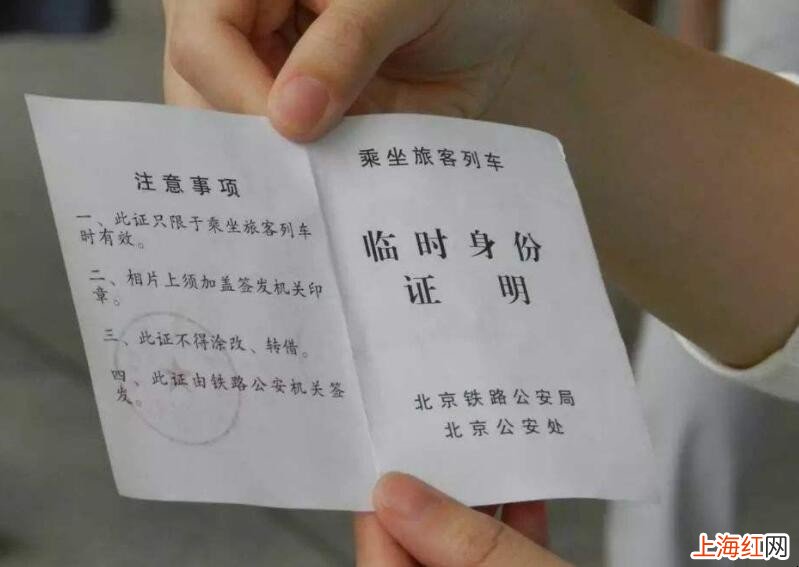 注意事项
一、此证只限于乘坐旅客列车
时有效。
二、相片上须加盖签发机关印
章。
三、此证不得涂改、转借。
四、此证由铁路公安机关签
发。
乘坐旅客列车
临时身份
证明
北京铁路公安局
北京公安处
上海红网